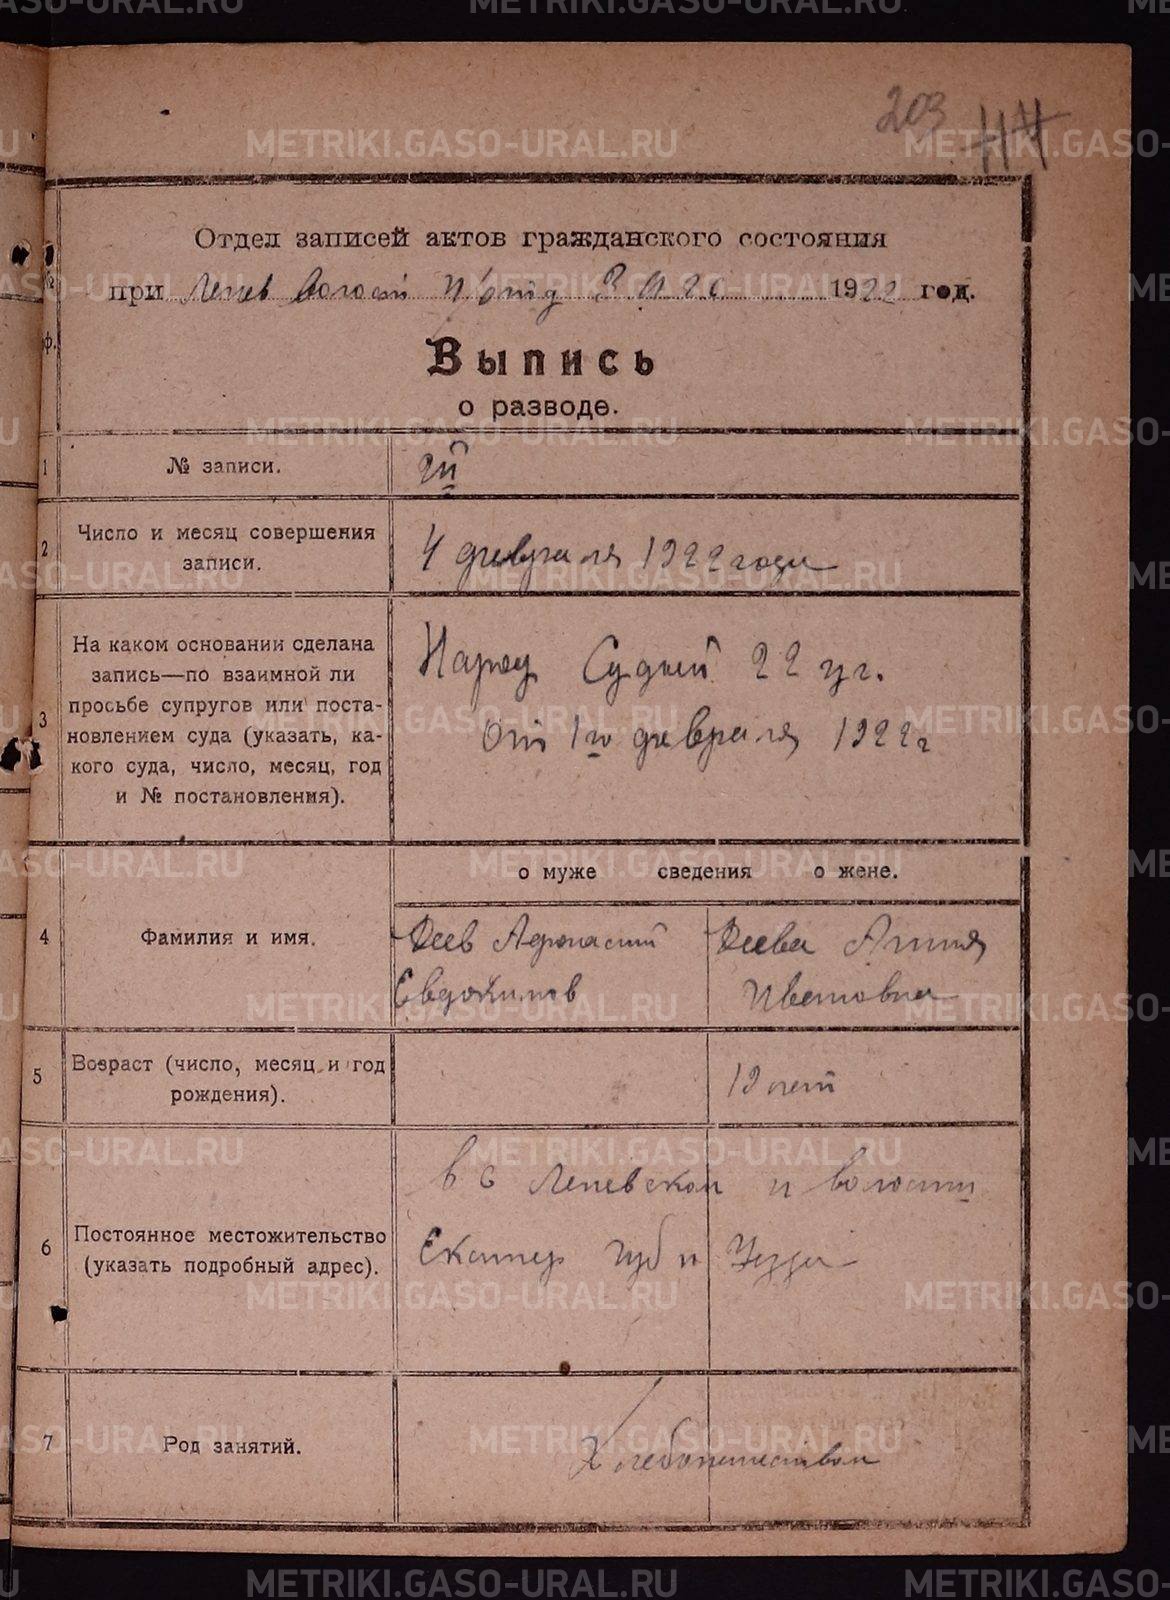 203
Отдел записей актов гражданского состояния
при Лепев Волост 1922 год.
Выпись
о разводе.
1 № записи.
2й
2 Число и месяц совершения
записи.
4 февраля 1922 года
3 На каком основании сделана
запись—по взаимной ли
просьбе супругов или поста-
новлением суда (указать, ка-
кого суда, число, месяц, год
и № постановления).
Народ Судьей 22 уч.
От 1го февраля 1922 г
о муже сведения о жене.
4 Фамилия и имя.
Деев Афонасий
Евдокимов
Деева Анна
Ивановна
5 Возраст (число, месяц и год
рождения).
19 лет
6 Постоянное местожительство
(указать подробный адрес).
в с Лепевском и волости
Екатер губ и Уезда
7 Род занятий.
Хлебопашеством
METRIKI.GASO-URAL.RU